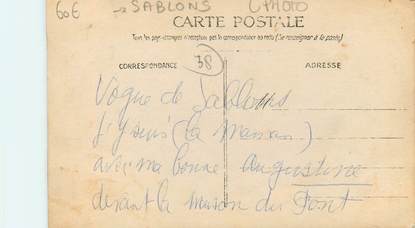 60€ → SABLONS (PHOTO
CARTE POSTALE
Tous les pays étrangers n'acceptent pas la correspondance au recto (Se renseigner à la poste)
CORRESPONDANCE 38 ADRESSE
Vogue de Sablons
j'y suis (la Maman)
avec ma bonne Augustine
devant la maison du Pont